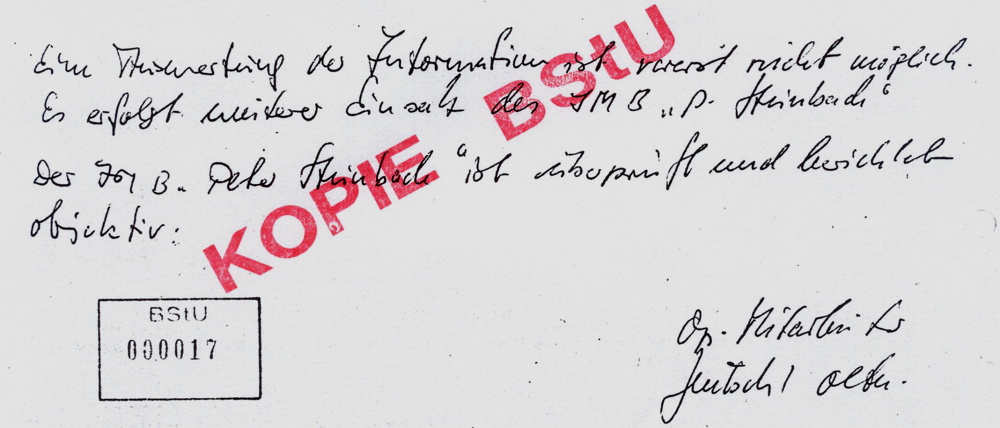 Eine Auswertung der Information ist vorerst nicht möglich.
Es erfolgt weiterer Einsatz des IMB „P. Steinbach“
Der IM B. „Peter Steinbach“ ist überprüft und berichtet
objektiv.
KOPIE BStU
BStU
000017
Op. Mitarbeiter